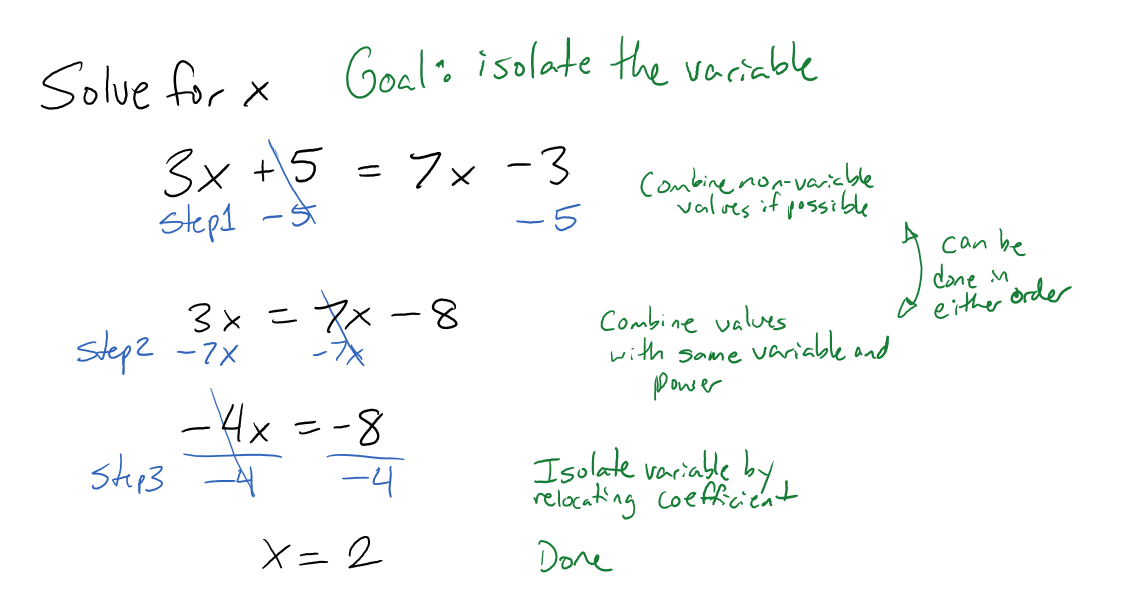 Solve for x
Goal: isolate the variable
3x + 5 = 7x - 3
Step1 -5 -5
Combine non-variable
values if possible
can be
done in
either order
3x = 7x - 8
Step2 -7x -7x
Combine values
with same variable and
power
-4x = -8
Step3 -4 -4
Isolate variable by
relocating coefficient
x = 2
Done